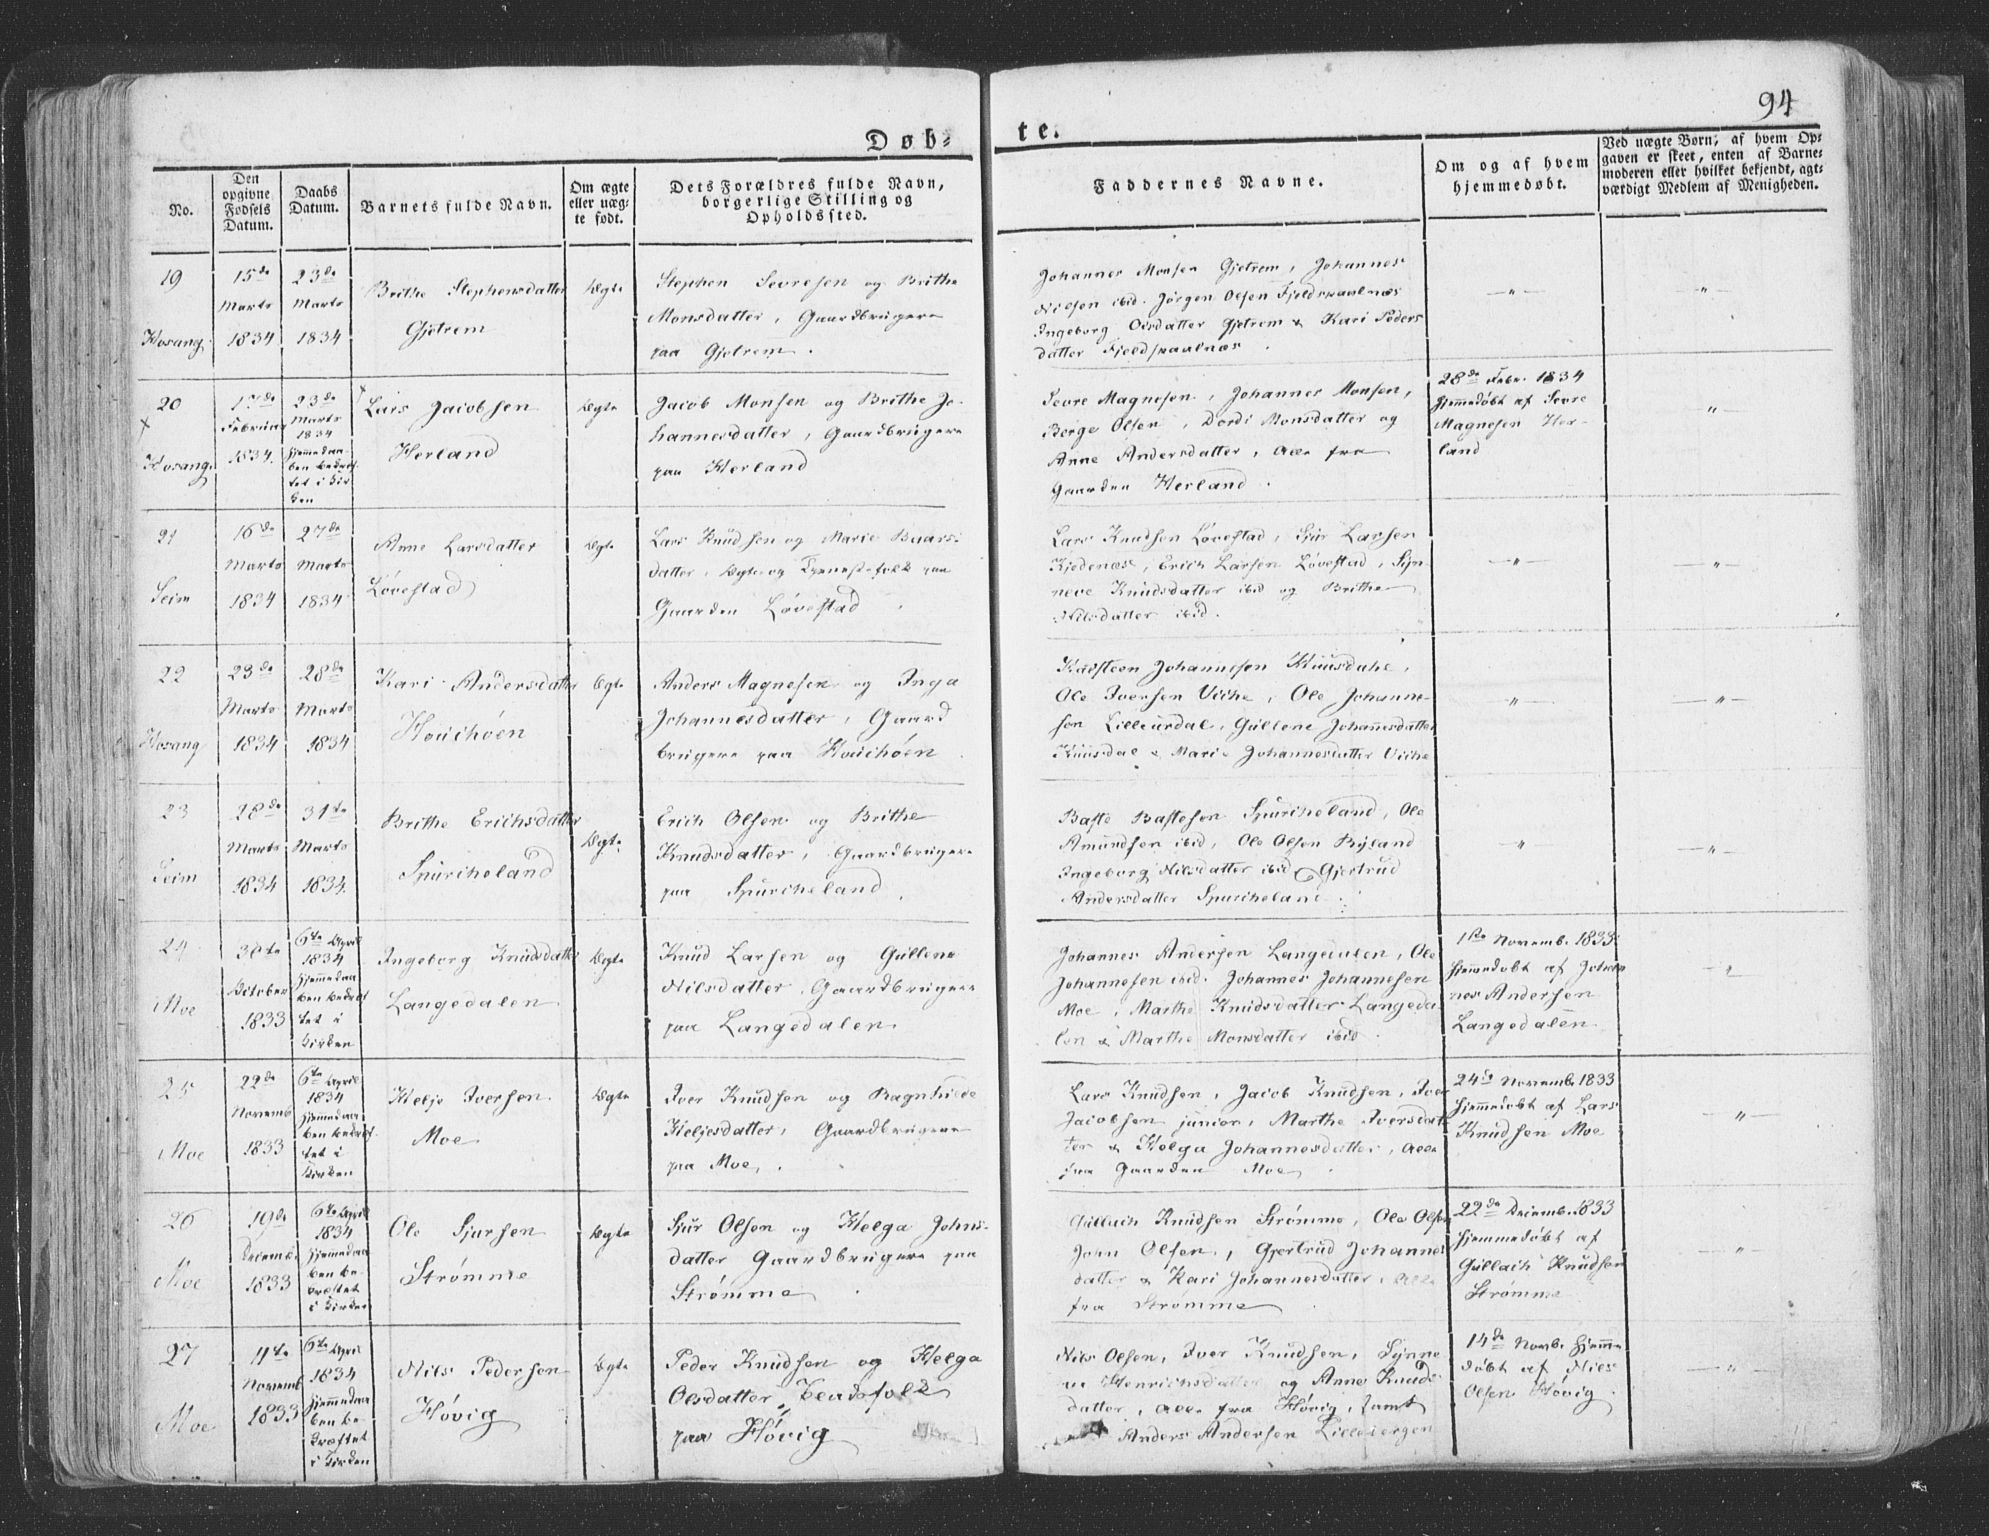 94
Døb-
te.
No.
Den opgivne Fødsels Datum.
Daabs Datum.
Barnets fulde Navn.
Om ægte eller uægte født.
Dets Forældres fulde Navn, borgerlige Stilling og Opholdssted.
Faddernes Navne.
Om og af hvem hjemmedøbt.
Ved uægte Børn; af hvem Opgaven er skeet, enten af Barnemoderen eller hvilket bekjendt, agtværdigt Medlem af Menigheden.
19
Hosang
15de
Marts
1834
23de
Marts
1834
Brithe Stephensdatter
Gjetrem
Ægte
Stephen Sevresen og Brithe
Monsdatter, Gaardbrugere
paa Gjetrem.
Johannes Monsen Gjetrem, Johannes
Nilsen ibid. Jörgen Olsen Fjeldspaalnæs
Ingeborg Olsdatter Gjetrem & Kari Peders
datter Fjeldspaalnæs.
20
Hosang
17de
Februar
1834.
23de
Marts
1834
hjemedaa-
ben bekræf-
tet i Kir
ken
Lars Jacobsen
Herland
Ægte
Jacob Monsen og Brithe Jo-
hannesdatter, Gaardbrugere
paa Herland
Sevre Magnesen, Johannes Monsen,
Berge Olsen, Dordi Monsdatter og
Anne Andersdatter, Alle fra
Gaarden Herland.
28de Febr. 1834
hjemmedöbt af Sevre
Magnesen Her-
land
21
Seim
16de
Marts
1834
27de
Marts
1834
Anne Larsdatter
Lövestad
Ægte
Lars Knudsen og Marie Baars-
datter, Ægte og Tjenestefolk paa
Gaarden Lövestad.
Lars Knudsen Lövestad, Sjur Larsen
Kjedenæs, Erich Larsen Lövestad, Syn-
neve Knudsdatter ibid og Brithe
Nilsdatter ibid.
22
Hosang
23de
Marts
1834
28de
Marts
1834
Kari Andersdatter
Houchöen
Ægte
Anders Magnesen og Inga
Johannesdatter, Gaard
brugere paa Houchöen
Karsteen Johannesen
Ole Iversen Uiche, Ole Johanne-
sen Lilleurdal, Gullene Johannesdatter
Kuusdal & Marie Johannesdatter Uiche
23
Seim
28de
Marts
1834
31te
Marts
1834.
Brithe Erichsdatter
Spurcheland
Ægte
Erich Olsen og Brithe
Knudsdatter, Gaardbrugere
paa Spurcheland.
Baste Bastesen Spurcheland, Ole
Amundsen ibid, Ole Olsen Ryland
Ingeborg Nilsdatter ibid & Gjertrud
Andersdatter Spurcheland.
24
Moe
30te
October
1833
6te April
1834
hjemmedaa
ben bekræf
tet i
Kirken
Ingeborg Knudsdatter
Langedalen
Ægte
Knud Larsen og Gullene
Nilsdatter, Gaardbrugere
paa Langedalen.
Johannes Andersen Langedalen, Ole
Johannesen ibid. Johannes Johannesen
Moe, Marthe Knudsdatter Langeda
len & Marthe Monsdatter ibid.
1ste Novemb. 1833
hjemmedöbt af Johan
nes Andersen
Langedalen
25
Moe
22de
Novemb
1833
6te April
1834
hjemmedaa-
ben bekræf-
tet i
Kirken
Helje Iversen
Moe
Ægte
Iver Knudsen og Ragnhilde
Heljesdatter, Gaardbrugere
paa Moe.
Lars Knudsen, Jacob Knudsen, Iver
Jacobsen junior, Marthe Iversdat
ter & Helga Johannesdatter, Alle
fra Gaarden Moe
24de Novemb 1833
hjemmedöbt af Lars
Knudsen Moe
26
Moe
19de
Decemb.
1833
6te April
1834
hjemmedaa
ben be-
kræftet
i Kirken
Ole Sjursen
Strömme
Ægte
Sjur Olsen og Helga Johns-
datter Gaardbrugere paa
Strömme.
Gullach Knudsen Strömme, Ole Olsen
John Olsen, Gjertrud Johannes
datter & Kari Johannesdatter, Alle
fra Strömme
22de Decemb. 1833
hjemmedöbt af
Gullach Knudsen
Strömme
27
Moe
11te
Novemb
1833
6te April
1834
hjemmedaa
ben be-
kræftet
i Kirken
Nils Pedersen
Hövig
Ægte
Peder Knudsen og Helga
Olsdatter
paa Hövig
Nils Olsen, Iver Knudsen, Synne
ve Henrichsdatter og Anne Knuds
datter, Alle fra Hövig, samt
Anders Andersen
14de Novb. hjemme
döbt af Niels
Olsen Hövig